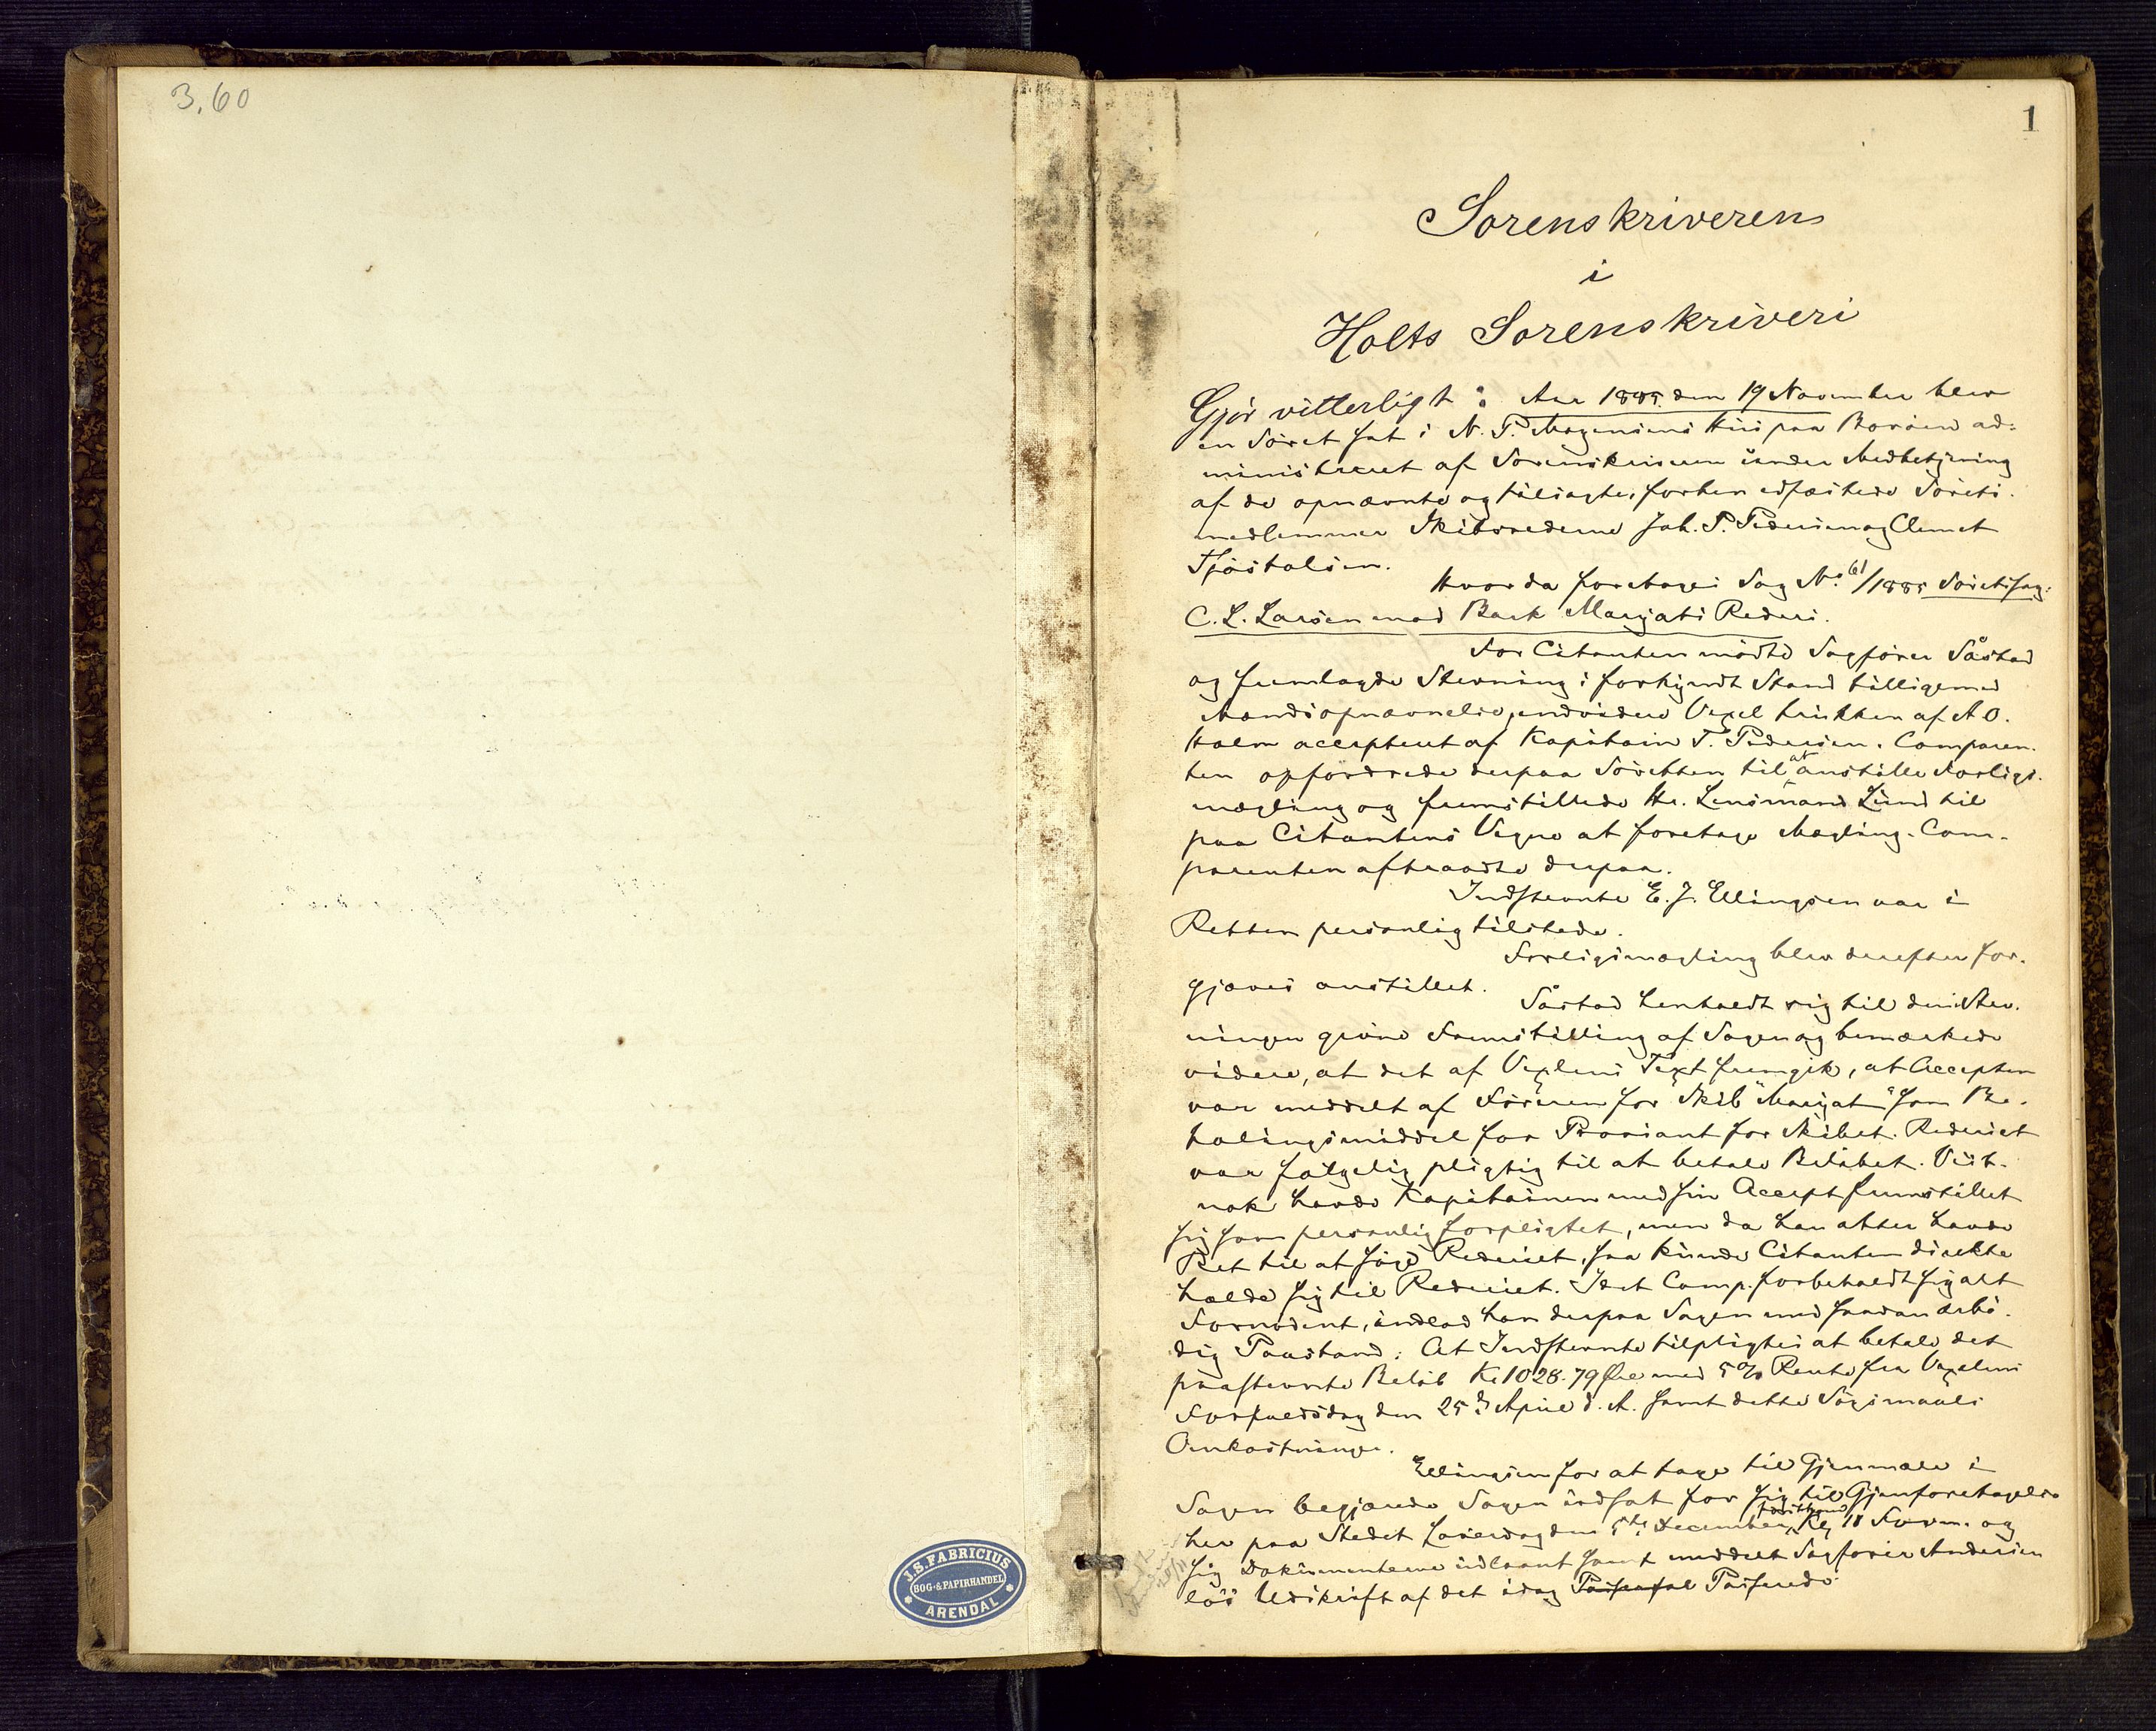 3,60
1
Sorenskriveren
i
Holts Sorenskriveri
Gjør vitterligt: Aar 1885 den 19 November blev
en Søret sat i N. P. Mogensens Hus paa Borøen ad-
ministreret af Sorenskriveren under Medbetjening
af de opnævnte og tilsagte, forhen edfæstede Sørets-
medlemmer Skibsrederne Joh. P. Pedersen og Clemet
Tjøstolsen.
Hvorda foretages Sag No. 61/1885 Søretssag:
C. L. Larsen mod Bark Maryats Rederi.
For Citanten mødte Sagfører Såstad
og fremlagde Stevning i forkyndt Stand tilligemed
Mandsopnævnelse, endvidere Vexel trukken af A O.
Holm accepteret af Kapitain T. Pedersen. Comparen-
ten opfordrede derpaa Søretten til at anstille Forligs-
mægling og fremstillede Hr. Lensmand Lund til
paa Citantens Vegne at foretage Mægling. Com-
parenten aftraadte derpaa.
Indstevnte E. J. Ellingsen var i
Retten personlig tilstede.
Forligsmægling blev derefter for-
gjæves anstillet.
Såstad henholdt sig til den i Stev-
ningen givne Fremstilling af Sagen og bemærkede
videre, at det af Vexlens Text fremgik, at Accepten
var meddelt af Føreren for Skib "Maryat" som Be-
talingsmiddel for Proviant for Skibet. Rederiet
var følgelig pligtig til at betale Beløbet. Vist-
nok havde Kapitainen med sin Accept fremstillet
sig som personlig forpligtet, men da han atter havde
Ret til at søge Rederiet, saa kunde Citanten direkte
holde sig til Rederiet. Idet Comp. forbeholdt sig alt
Fornødent, indlod han derpaa Sagen med saadan ærbø-
dig Paastand: At Indstevnte tilpligtes at betale det
paastevnte Beløb Kr 1028.79 Øre med 5 % Rente fra Vexelens
Forfaldsdag den 25de April d. A. samt dette Søgsmaals
Omkostninger.
Ellingsen for at tage til Gjenmæle i
Sagen begjærede Sagen udsat for sig til Gjenforetagelse
her paa Stedet Løverdag den 5te December Kl 11 Form. og
sig Dokumenterne udlaant samt meddelt Sagfører Andersen
løs Udskrift af det idag Passerede
J. S. FABRICIUS
BOG- & PAPIRHANDEL
ARENDAL